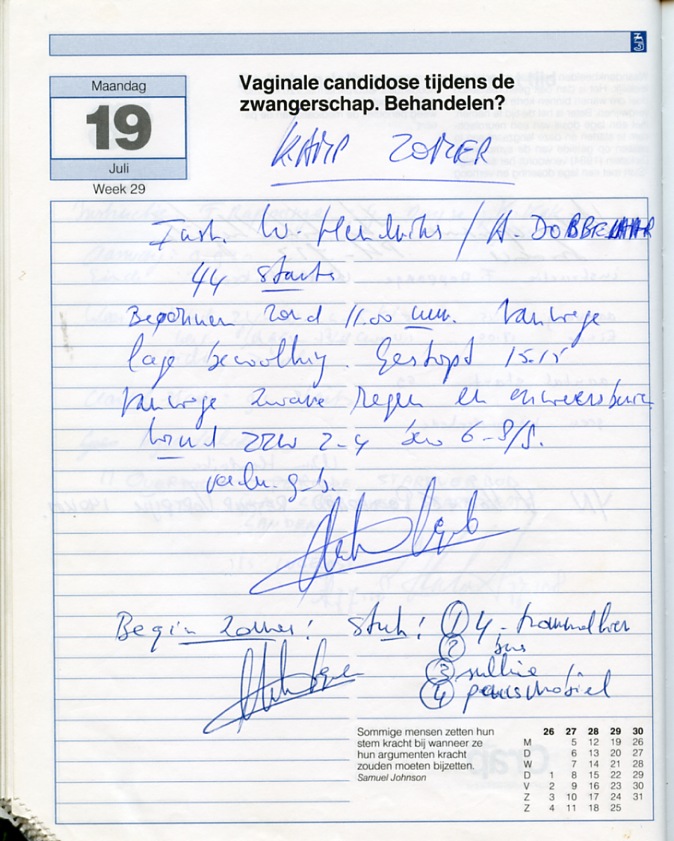 Maandag
19
Juli
Week 29
Vaginale candidose tijdens de
zwangerschap. Behandelen?
KAMP ZOMER
W. Hendriks / A. DOBBELAAR
44 starts
Begonnen rond 11.00 uur. Vanwege
lage bewolking. Gestopt 15.15
Vanwege zware regen en onweersbuien
Wind ZZW 2-4 bew 6-8/8.
Begin zomer! 1 4-trommellier
2 bus
3
4
Sommige mensen zetten hun
stem kracht bij wanneer ze
hun argumenten kracht
zouden moeten bijzetten.
Samuel Johnson
26 27 28 29 30
M 5 12 19 26
D 6 13 20 27
W 7 14 21 28
D 1 8 15 22 29
V 2 9 16 23 30
Z 3 10 17 24 31
Z 4 11 18 25